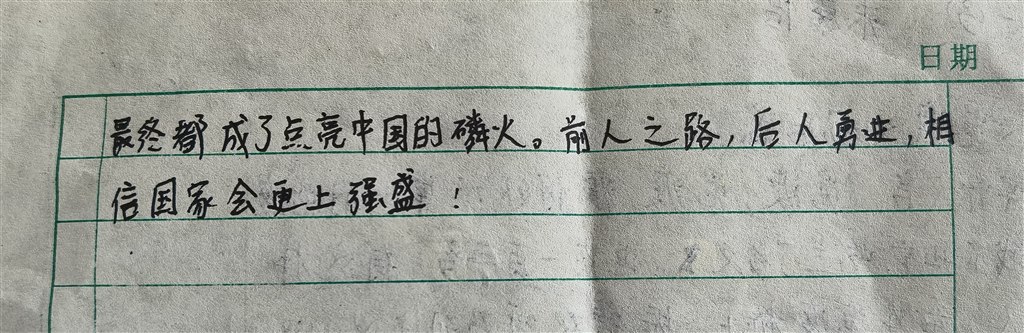 日期
最终都成了点亮中国的磷火。前人之路，后人勇进，相
信国家会更上强盛！